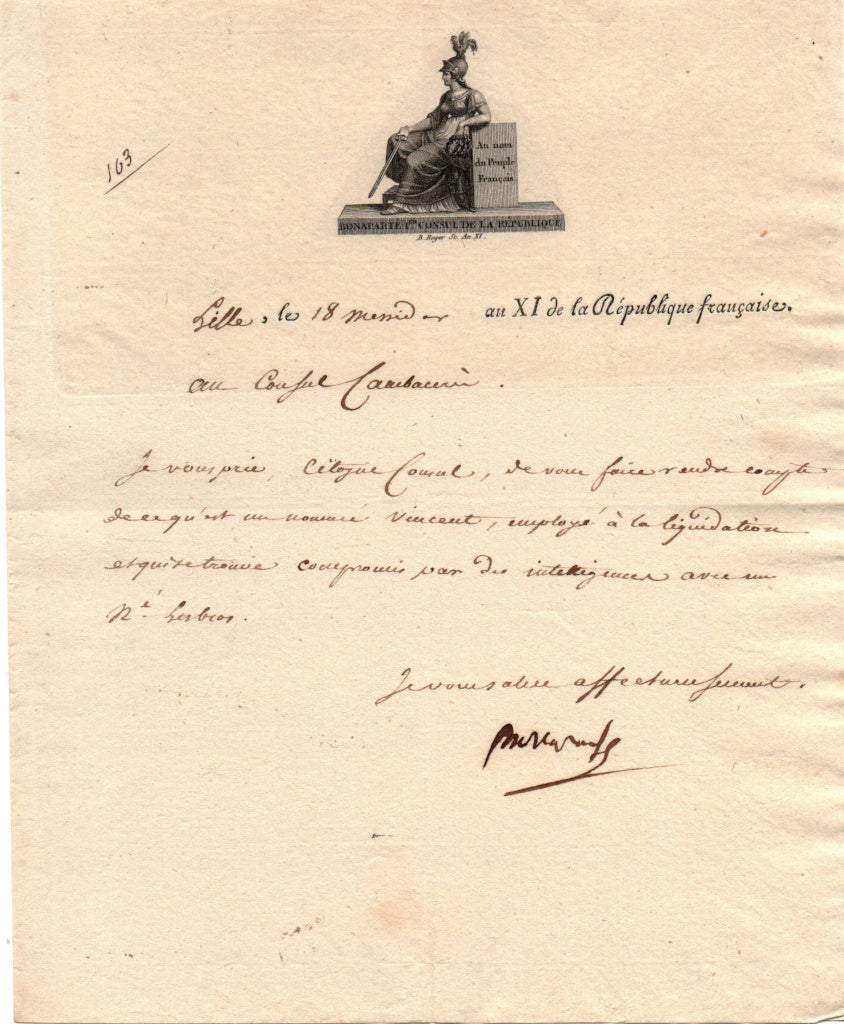 163
Au nom
du Peuple
Français.
BONAPARTE 1er. CONSUL DE LA RÉPUBLIQUE
B. Roger Sc. An XI.
Lille, le 18 messidor an XI de la République française.
au Consul Cambacérès.
Je vous prie, Citoyen Consul, de vous faire rendre compte
de ce qu'est un nommé Vincent, employé à la liquidation
et qui se trouve compromis par des intelligences avec un
Né.
Je vous salue affectueusement.
Bonaparte